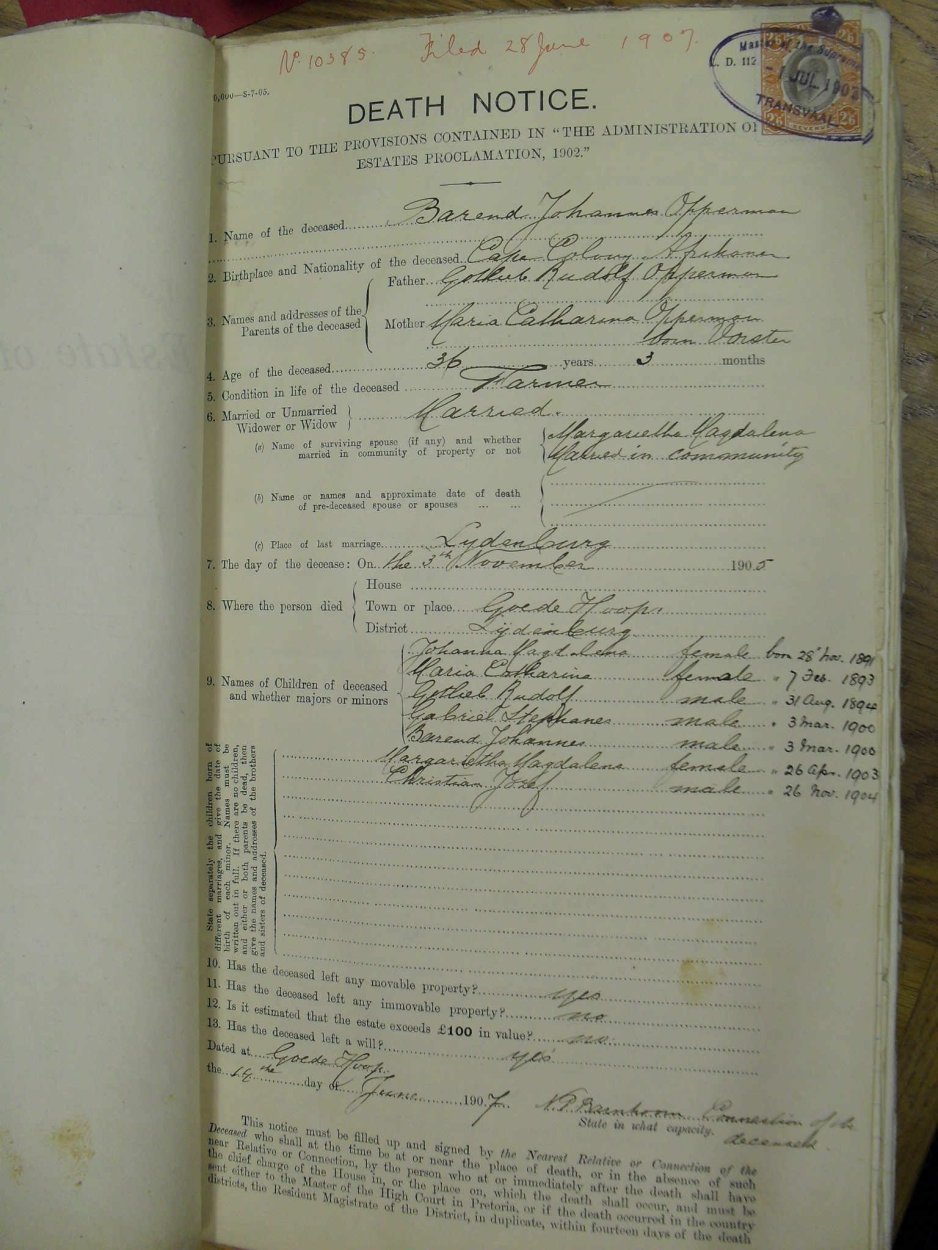 No. 10385. Filed 28 June 1907.
26 26
Master of the Supreme
L. D. 112
- 1 JUL 190
TRANSVAAL
2/6 2/6
0,000—S-7-05.
DEATH NOTICE.
PURSUANT TO THE PROVISIONS CONTAINED IN "THE ADMINISTRATION OF
ESTATES PROCLAMATION, 1902."
1. Name of the deceased Barend Johannes Opperman
2. Birthplace and Nationality of the deceased Cape Colony Afrikaner
3. Names and addresses of the Parents of the deceased
Father Gotlieb Rudolf Opperman
Mother Maria Catharina Opperman
born Vorster
4. Age of the deceased 36 years 3 months
5. Condition in life of the deceased Farmer
6. Married or Unmarried Widower or Widow Married.
(a) Name of surviving spouse (if any) and whether Margarietha Magdalena
married in community of property or not Married in community
(b) Name or names and approximate date of death
of pre-deceased spouse or spouses ... ...
(c) Place of last marriage Lydenburg
7. The day of the decease: On the 3th November 1905
8. Where the person died
House
Town or place Goede Hoop
District Lydenburg
9. Names of Children of deceased
and whether majors or minors
Johanna Magdalena female born 28 Nov. 1891
Maria Catharina female " 7 Feb. 1893
Gotlieb Rudolf male " 31 Aug. 1894
Gabriël Stephanes male " 3 Mar. 1900
Barend Johannes male " 3 Mar. 1900
Margarietha Magdalena female " 26 Apr. 1903
Christian Josef male " 26 Nov. 1904
State separately the children born of
different marriages, and give the date of
birth of each minor. Names must be
written out in full. If there are no children,
and either or both parents be dead, then
give the names and addresses of the brothers
and sisters of deceased.
10. Has the deceased left any movable property? yes
11. Has the deceased left any immovable property? no
12. Is it estimated that the estate exceeds £100 in value? no
13. Has the deceased left a will? yes
Dated at Goede Hoop
the 14th day of June 1907. Connection of the
State in what capacity. deceased
This notice must be filled up and signed by the Nearest Relative or Connection of the
Deceased who shall at the time be at or near the place of death, or in the absence of such
near Relative or Connection, by the person who at or immediately after the death shall have
the chief charge of the House in, or the place on, which the death shall occur, and must be
sent either to the Master of the High Court in Pretoria, or if the death occurred in the country
districts, the Resident Magistrate of the District, in duplicate, within fourteen days of the death